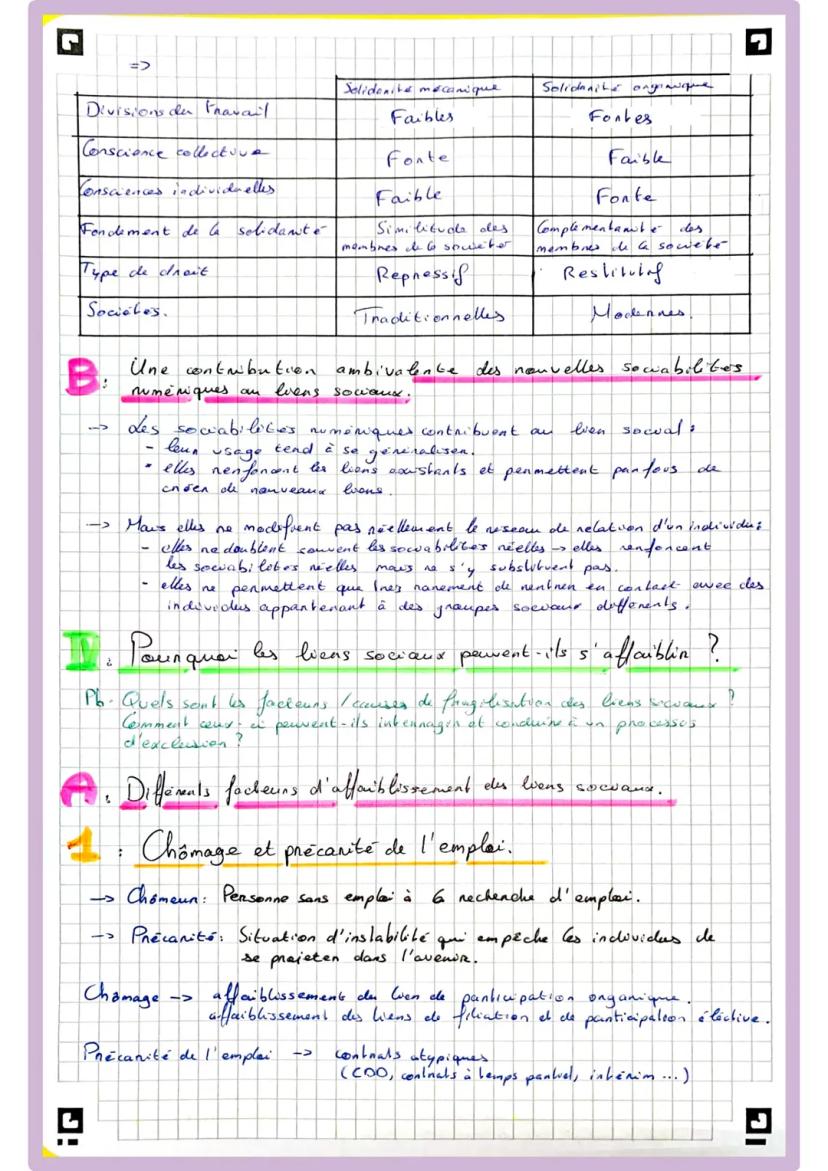 =>
Solidarité mécanique Solidarité organique
Divisions du travail Faibles Fortes
Conscience collective Forte Faible
Consciences individuelles Faible Forte
Fondement de la solidarité Similitude des membres de la société Complémentarité des membres de la société
Type de droit Répressif Restitutif
Sociétés. Traditionnelles Modernes.
B: Une contribution ambivalente des nouvelles sociabilités
numériques au liens sociaux.
-> Les sociabilités numériques contribuent au lien social :
- leur usage tend à se généraliser.
- elles renforcent les liens existants et permettent parfois de
créer de nouveaux liens.
-> Mais elles ne modifient pas réellement le réseau de relation d'un individu :
- elles redoublent souvent les sociabilités réelles -> elles renforcent
les sociabilités réelles mais ne s'y substituent pas.
- elles ne permettent que très rarement de rentrer en contact avec des
individus appartenant à des groupes sociaux différents.
IV: Pourquoi les liens sociaux peuvent-ils s'affaiblir ?
Pb. Quels sont les facteurs / causes de fragilisation des liens sociaux ?
Comment ceux-ci peuvent-ils interragir et conduire à un processus
d'exclusion ?
A. Différents facteurs d'affaiblissement des liens sociaux.
1: Chômage et précarité de l'emploi.
-> Chômeur: Personne sans emploi à la recherche d'emploi.
-> Précarité: Situation d'instabilité qui empêche les individus de
se projeter dans l'avenir.
Chômage -> affaiblissement du lien de participation organique.
affaiblissement des liens de filiation et de participation élective.
Précarité de l'emploi -> contrats atypiques
(CDD, contrats à temps partiel, intérim ...)